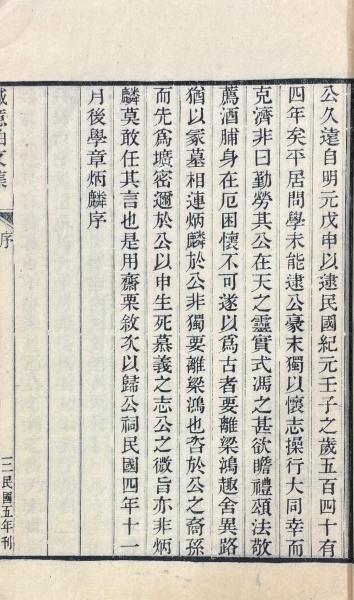 公久遠自明元戊申以逮民國紀元壬子之歲五百四十有
四年矣平居問學未能逮公豪末獨以懷志操行大同幸而
克濟非曰勤勞其公在天之靈實式馮之甚欲瞻禮頌法敬
薦酒脯身在厄困懷不可遂以爲古者要離梁鴻趣舍異路
猶以冢墓相連炳麟於公非獨要離梁鴻也吝於公之裔孫
而先爲壙密邇於公以申生死慕義之志公之微旨亦非炳
麟莫敢任其言也是用齋栗敘次以歸公祠民國四年十一
月後學章炳麟序
誠意伯文集
序
二
民國五年刊